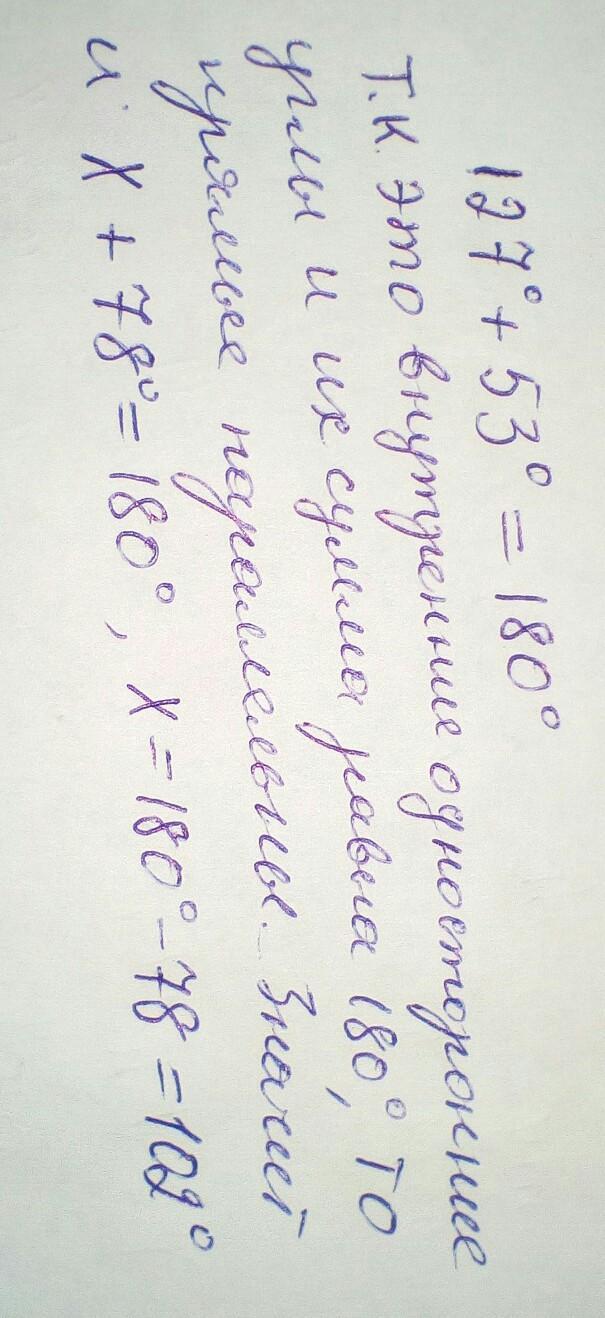 127° + 53° = 180°
т.к. это внутренние односторонние
углы и их сумма равна 180°, то
прямые параллельны. Значит
и x + 78° = 180°, x = 180° - 78 = 102°